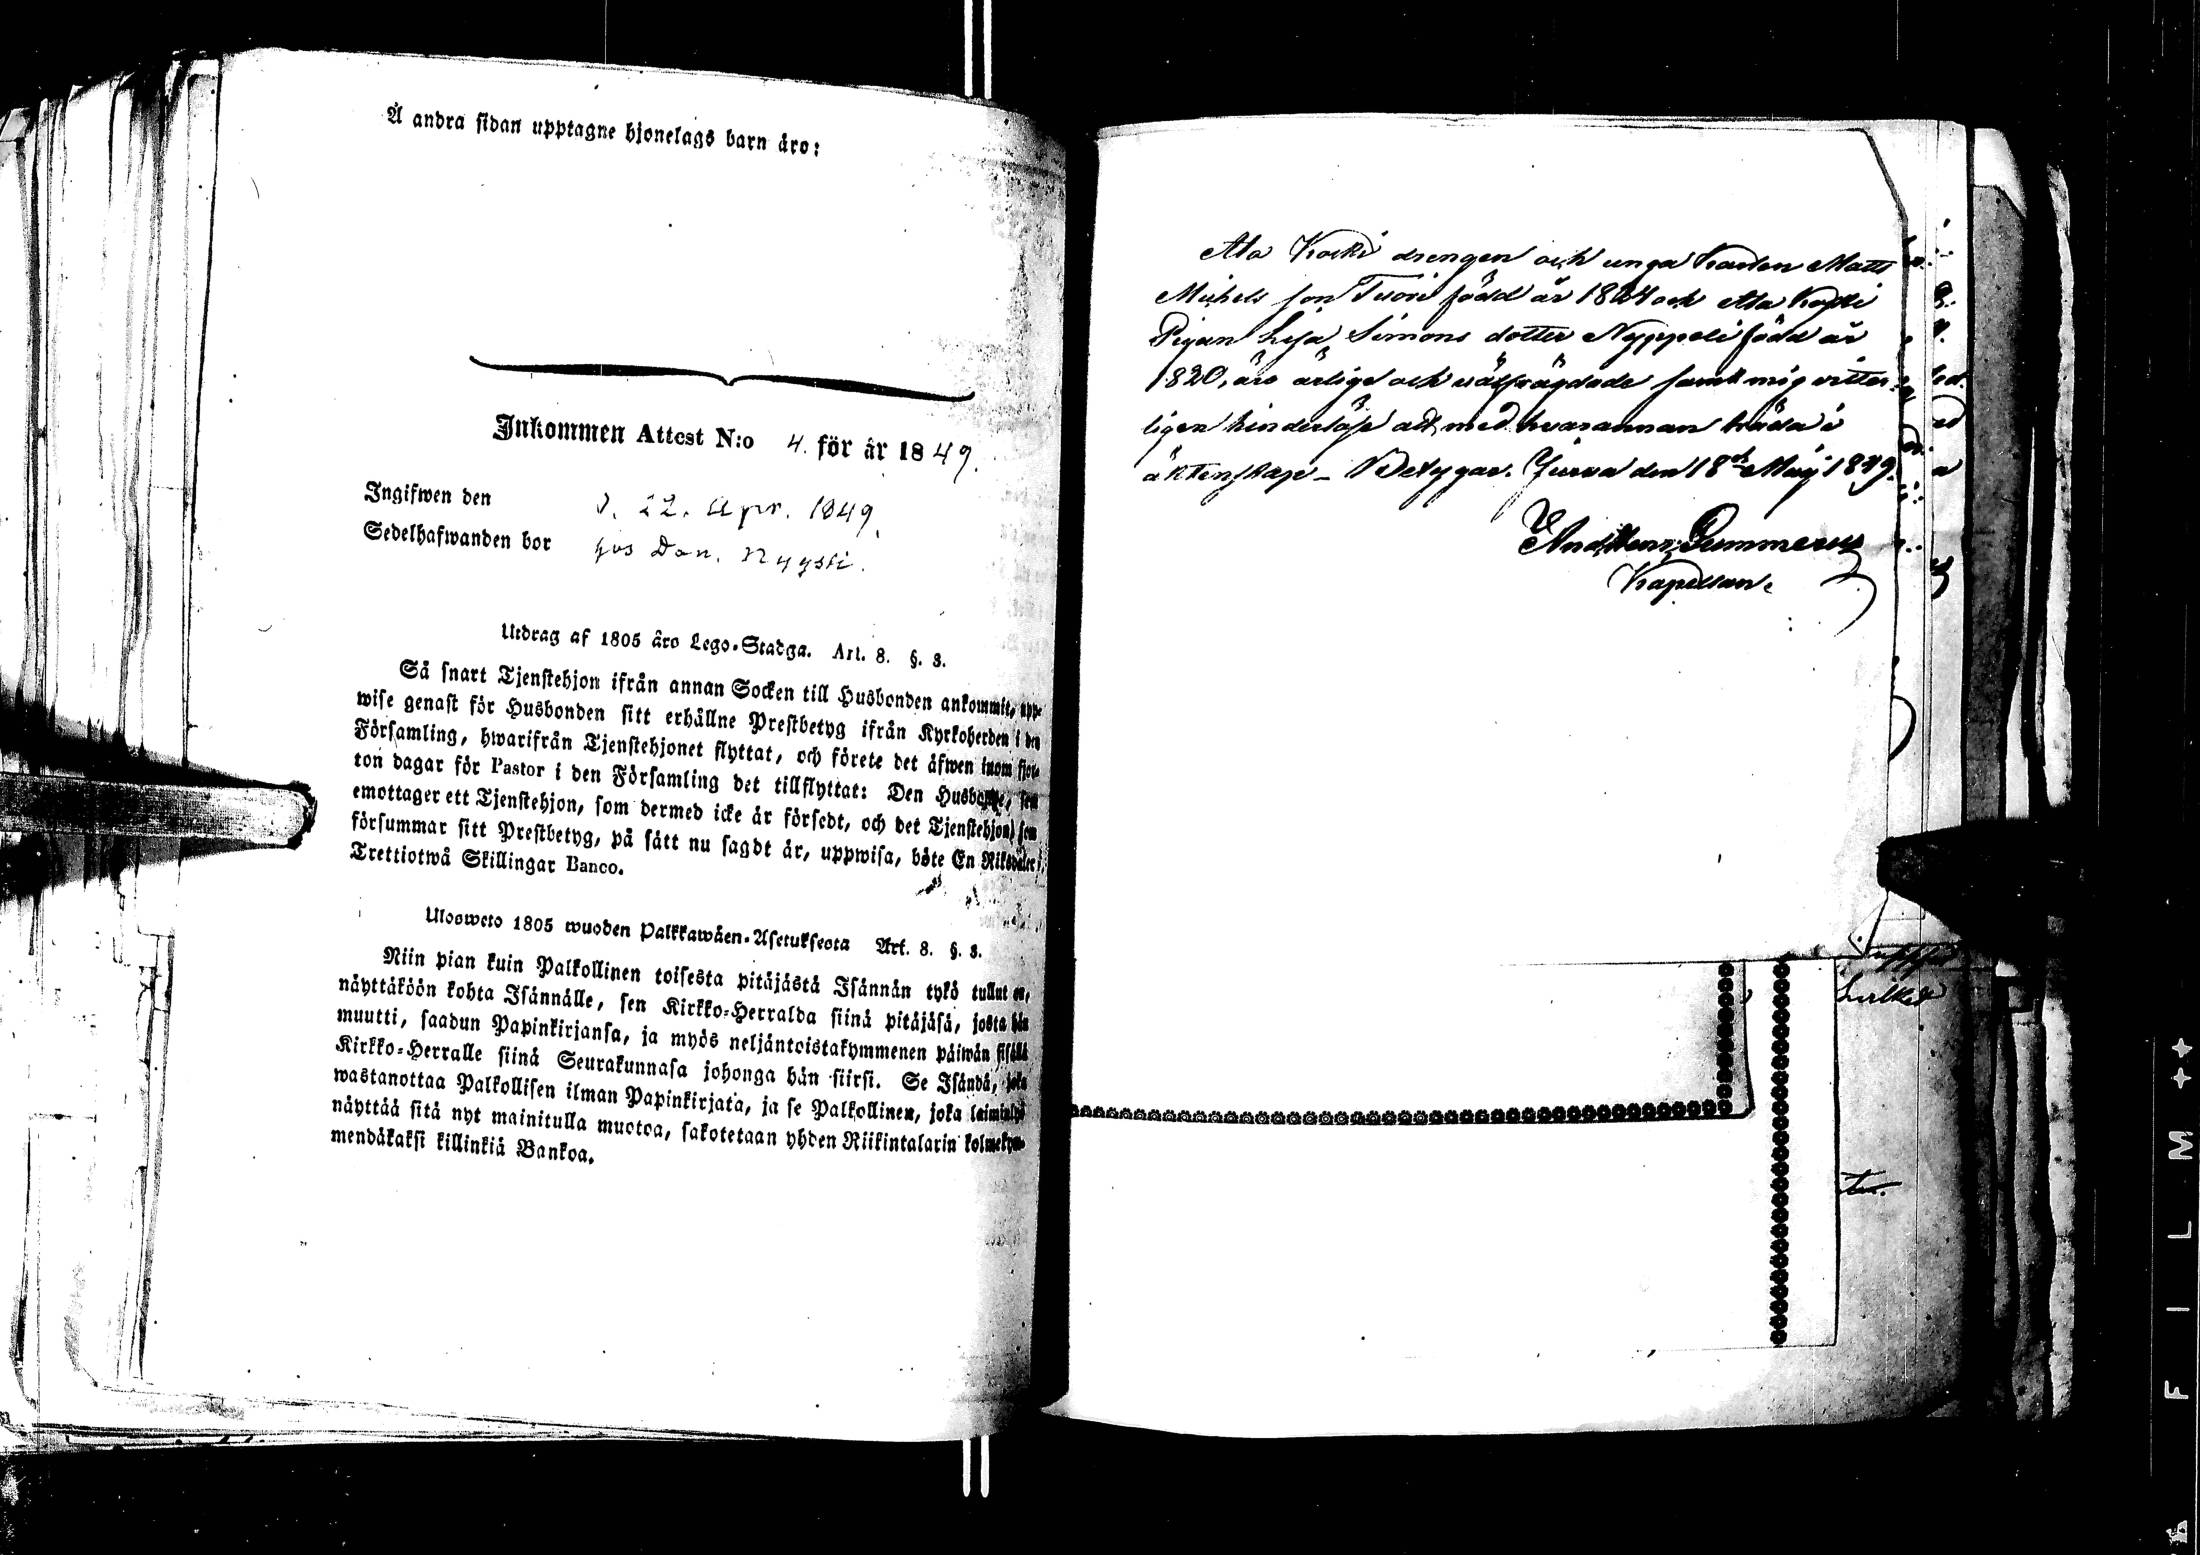 Å andra sidan upptagne hjonelags barn äro:
Inkommen Attest N:o 4. för år 1849.
Ingifwen den d. 22. Apr. 1849.
Sedelhafwanden bor hos Dan. Nygsti.
Utdrag af 1805 års Lego-Stadga. Art. 8. §. 3.
Så snart Tjenstehjon ifrån annan Socken till Husbonden ankommit, upp-
wise genast för Husbonden sitt erhållne Prestbetyg ifrån Kyrkoherden i den
Församling, hwarifrån Tjenstehjonet flyttat, och förete det äfwen inom fjor-
ton dagar för Pastor i den Församling det tillflyttat: Den Husbonde, som
emottager ett Tjenstehjon, som dermed icke är försedt, och det Tjenstehjon, som
försummar sitt Prestbetyg, på sätt nu sagdt är, uppwisa, böte En Riksdaler
Trettiotwå Skillingar Banco.
Ulosweto 1805 wuoden Palkkawäen-Asetuksesta Art. 8. §. 3.
Niin pian kuin Palkollinen toisesta pitäjästä Isännän tykö tullut on,
näyttäköön kohta Isännälle, sen Kirkko-Herralda siinä pitäjäsä, josta hän
muutti, saadun Papinkirjansa, ja myös neljäntoistakymmenen päiwän sisällä
Kirkko-Herralle siinä Seurakunnasa johonga hän siirsi. Se Isändä, joka
wastanottaa Palkollisen ilman Papinkirjata, ja se Palkollinen, joka laiminlyö
näyttää sitä nyt mainitulla muotoa, sakotetaan yhden Riikintalarin kolmekym-
mendäkaksi killinkiä Bankoa.
Ala Koski drengen och unga karlen Matts
Michels son Tuori född år 1824 och Ala Koski
Pigan Lisa Simons dotter Nyppeli född år
1820, äro ärlige och välfrägdade samt mig vitter-
ligen hinderlöse att med hvarannan träda i
äktenskap – Betygar. Jurva den 18de Maj 1849.
And. Henr. Gummerus
Kapellan.
hvilket
FILM